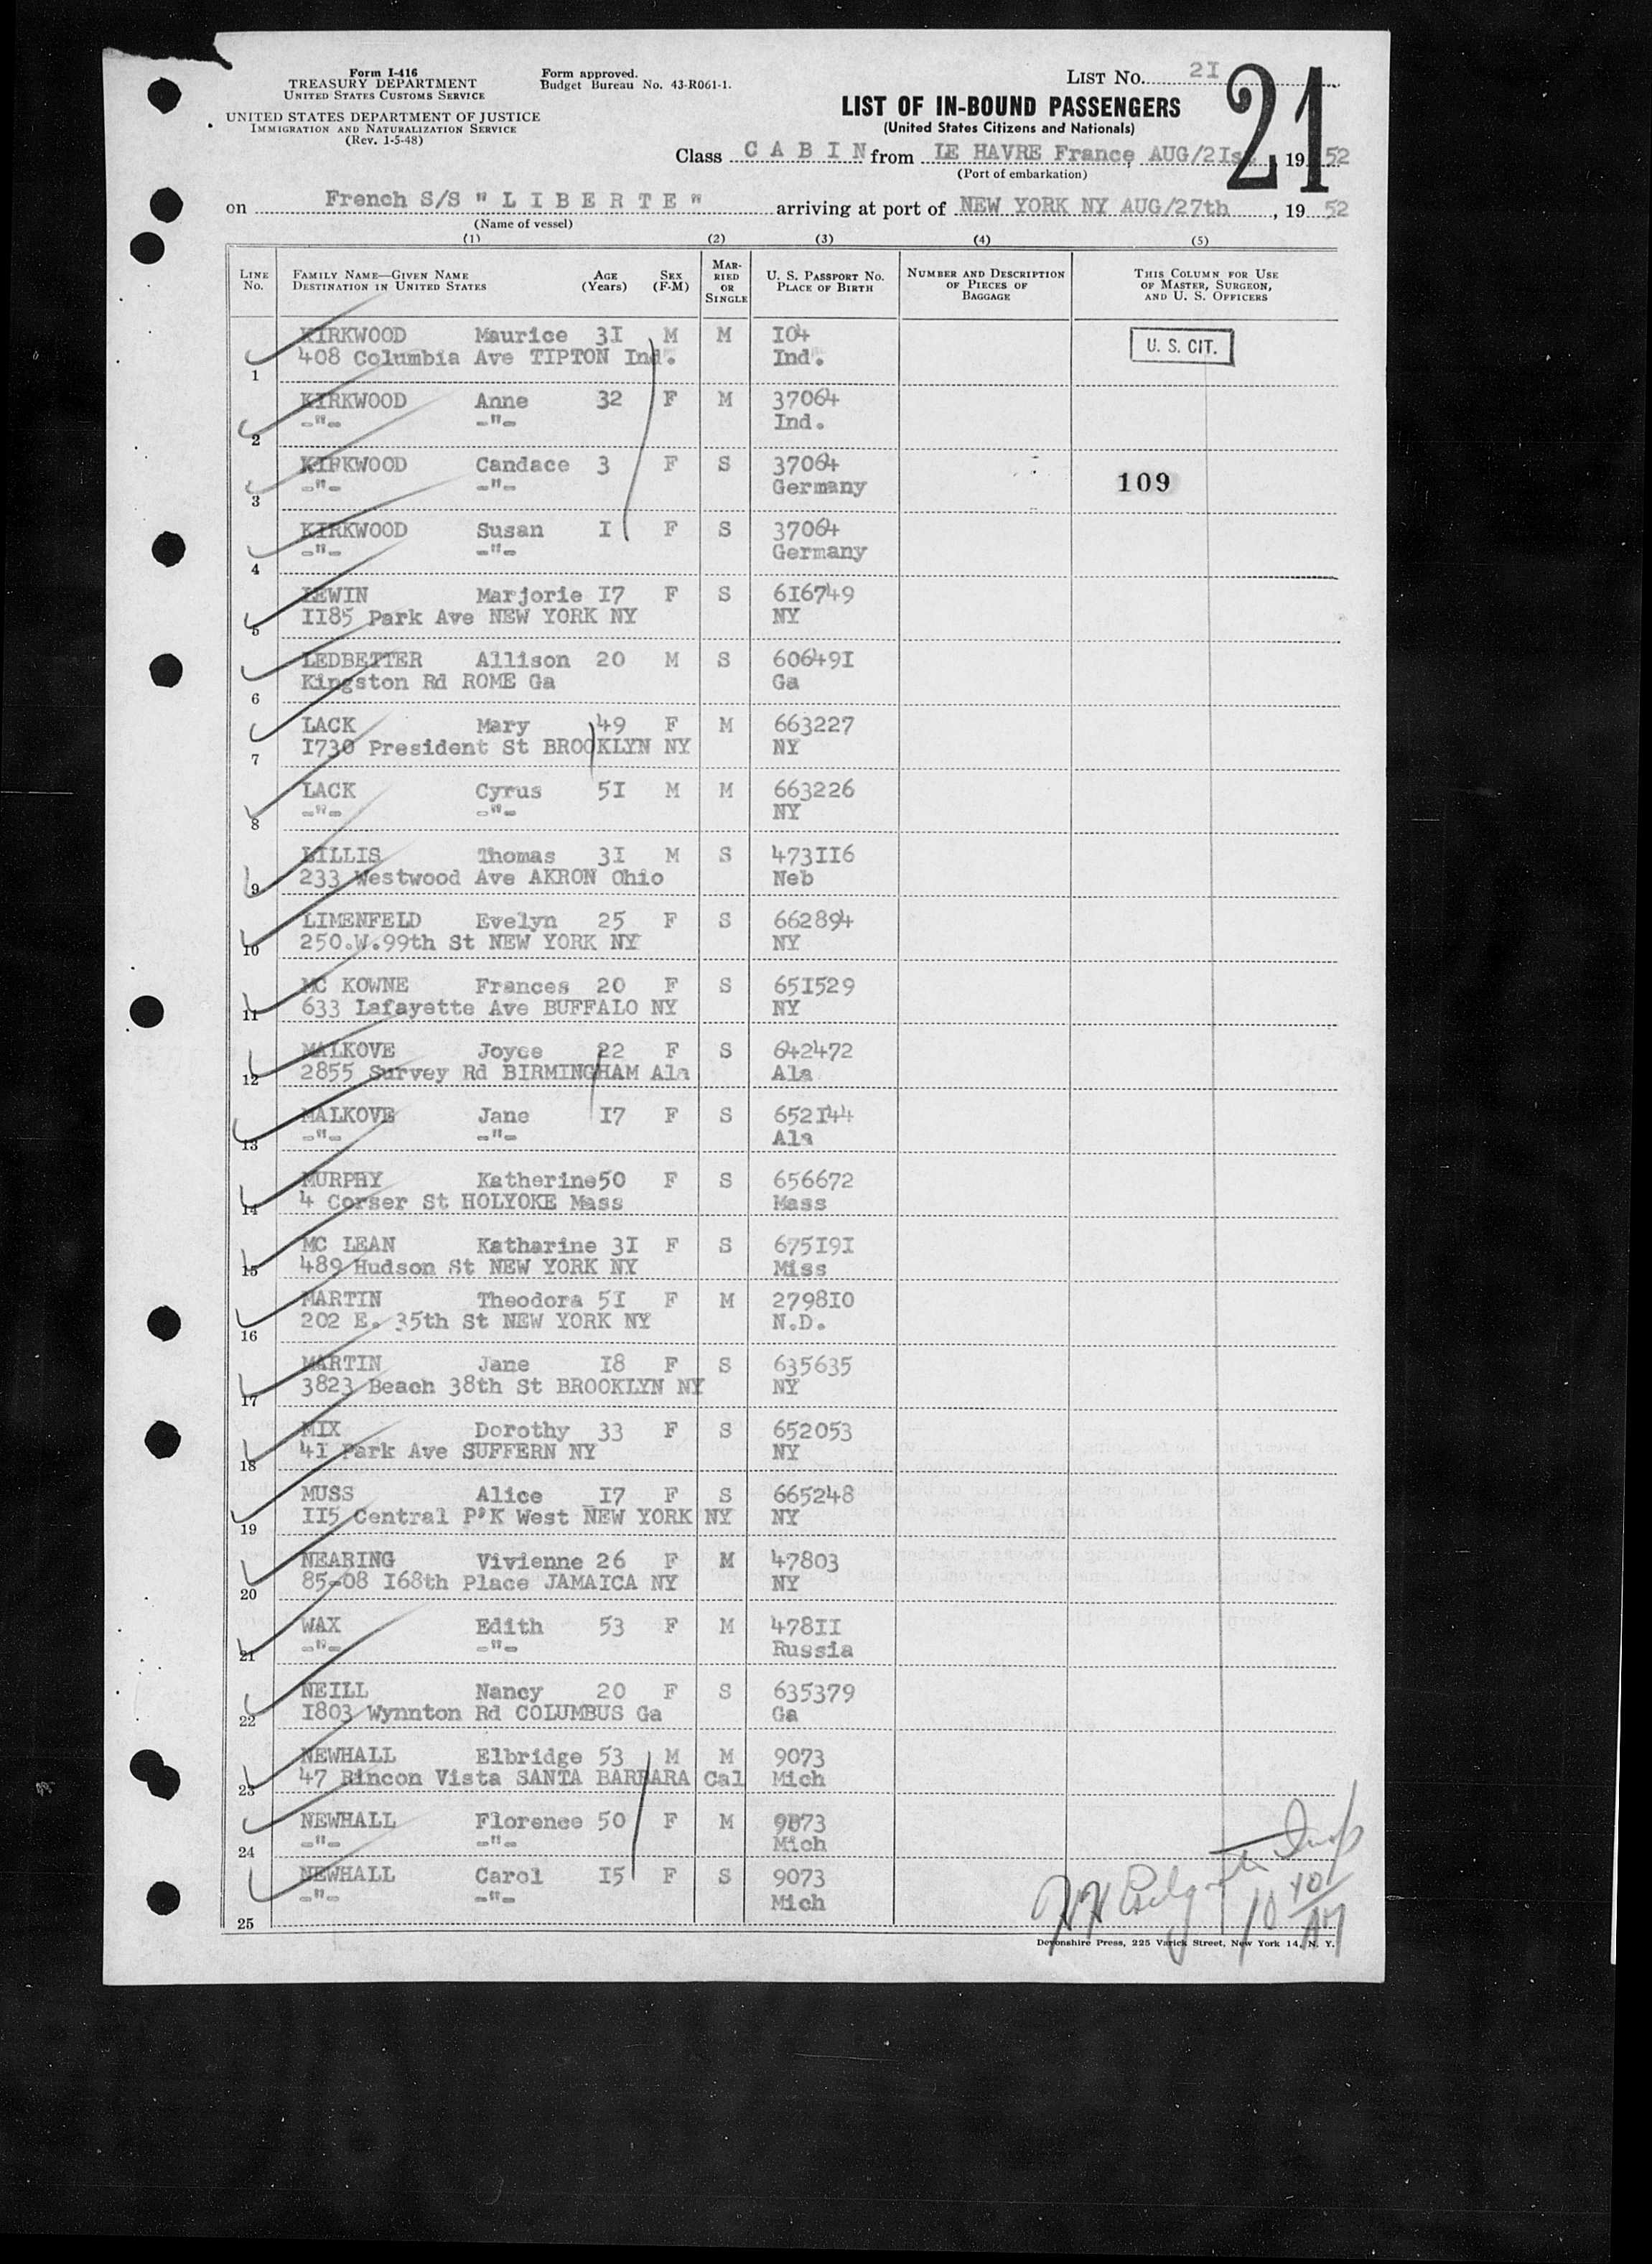 Form I-416
TREASURY DEPARTMENT
UNITED STATES CUSTOMS SERVICE
UNITED STATES DEPARTMENT OF JUSTICE
IMMIGRATION AND NATURALIZATION SERVICE
(Rev. 1-5-48)
Form approved.
Budget Bureau No. 43-R061-1.
LIST NO. 2I
21
LIST OF IN-BOUND PASSENGERS
(United States Citizens and Nationals)
Class C A B I N from LE HAVRE France, AUG/2Ist, 1952
(Port of embarkation)
on French S/S " L I B E R T E " arriving at port of NEW YORK NY AUG/27th, 1952
(Name of vessel)
(1) (2) (3) (4) (5)
LINE NO. FAMILY NAME—GIVEN NAME DESTINATION IN UNITED STATES AGE (Years) SEX (F-M) MARRIED OR SINGLE U. S. PASSPORT NO. PLACE OF BIRTH NUMBER AND DESCRIPTION OF PIECES OF BAGGAGE THIS COLUMN FOR USE OF MASTER, SURGEON, AND U. S. OFFICERS
KIRKWOOD Maurice 3I M M I04 U. S. CIT.
1 408 Columbia Ave TIPTON Ind. Ind.
KIRKWOOD Anne 32 F M 37064
2 -"- -"- Ind.
KIRKWOOD Candace 3 F S 37064 109
3 -"- -"- Germany
KIRKWOOD Susan I F S 37064
4 -"- -"- Germany
LEWIN Marjorie I7 F S 6I6749
5 II85 Park Ave NEW YORK NY NY
LEDBETTER Allison 20 M S 60649I
6 Kingston Rd ROME Ga Ga
LACK Mary 49 F M 663227
7 I730 President St BROOKLYN NY NY
LACK Cyrus 5I M M 663226
8 -"- -"- NY
LILLIS Thomas 3I M S 473II6
9 233 Westwood Ave AKRON Ohio Neb
LIMENFELD Evelyn 25 F S 662894
10 250.W.99th St NEW YORK NY NY
MC KOWNE Frances 20 F S 65I529
11 633 Lafayette Ave BUFFALO NY NY
MALKOVE Joyce 22 F S 642472
12 2855 Survey Rd BIRMINGHAM Ala Ala
MALKOVE Jane I7 F S 652I44
13 -"- -"- Ala
MURPHY Katherine50 F S 656672
14 4 Corser St HOLYOKE Mass Mass
MC LEAN Katharine 3I F S 675I9I
15 489 Hudson St NEW YORK NY Miss
MARTIN Theodora 5I F M 2798I0
16 202 E. 35th St NEW YORK NY N.D.
MARTIN Jane I8 F S 635635
17 3823 Beach 38th St BROOKLYN NY NY
MIX Dorothy 33 F S 652053
18 4I Park Ave SUFFERN NY NY
MUSS Alice I7 F S 665248
19 II5 Central P'K West NEW YORK NY NY
NEARING Vivienne 26 F M 47803
20 85-08 I68th Place JAMAICA NY NY
WAX Edith 53 F M 478II
21 -"- -"- Russia
NEILL Nancy 20 F S 635379
22 I803 Wynnton Rd COLUMBUS Ga Ga
NEWHALL Elbridge 53 M M 9073
23 47 Rincon Vista SANTA BARBARA Cal Mich
NEWHALL Florence 50 F M 9073
24 -"- -"- Mich
NEWHALL Carol I5 F S 9073
25 -"- -"- Mich
Devonshire Press, 225 Varick Street, New York 14, N. Y.